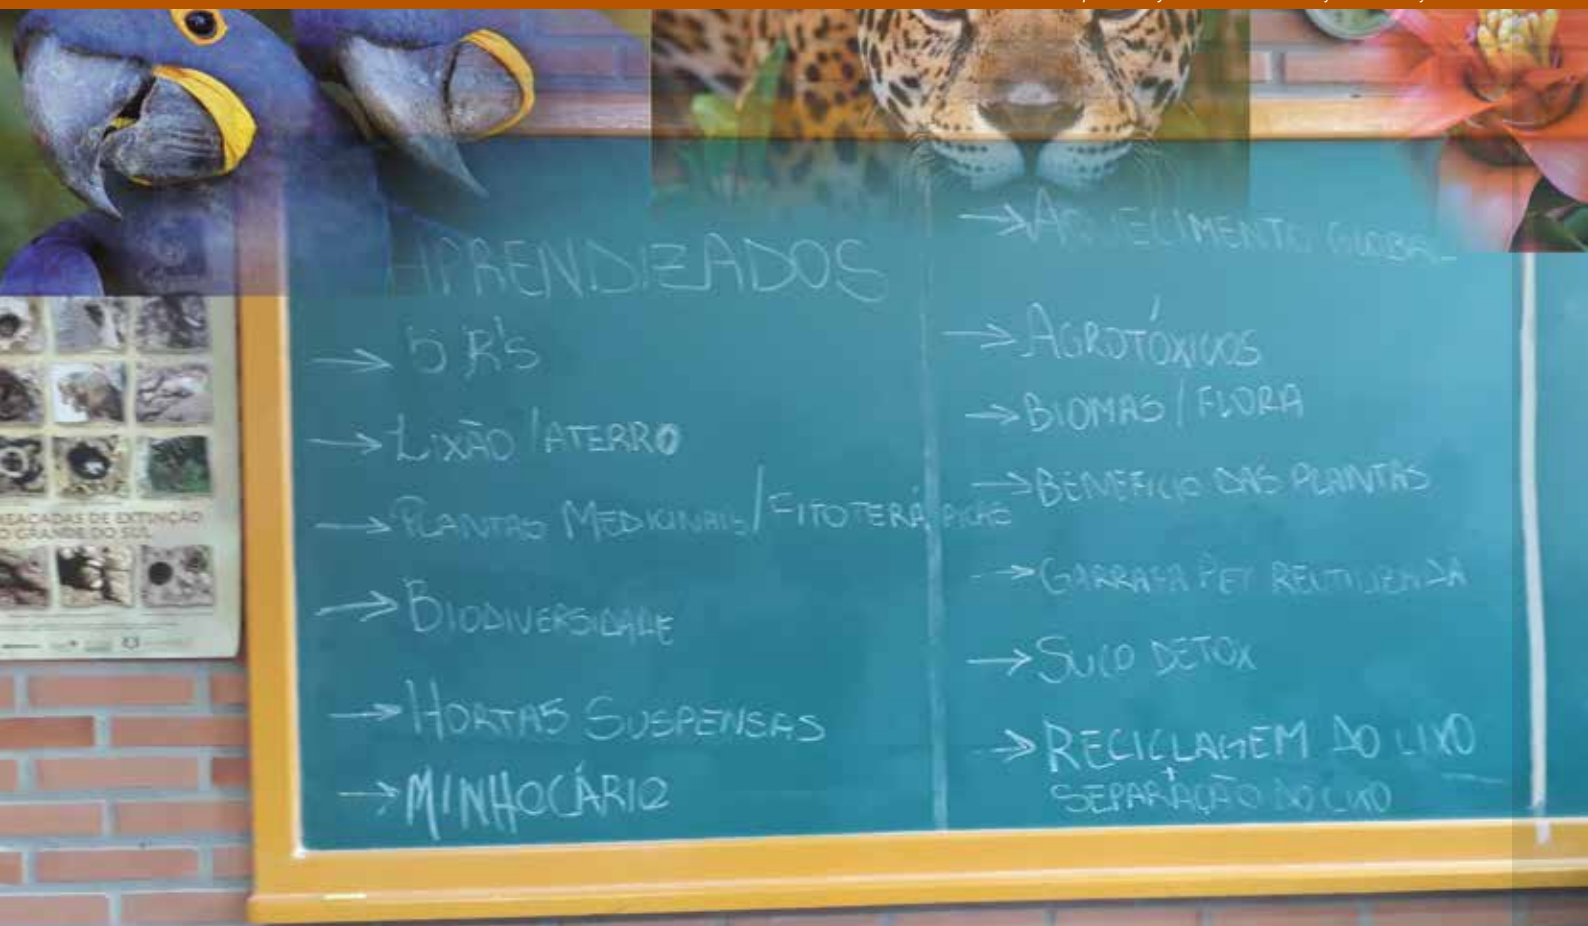 APRENDIZADOS
→ 5 R'S
→ LIXÃO / ATERRO
→ PLANTAS MEDICINAIS / FITOTERÁPICAS
→ BIODIVERSIDADE
→ HORTAS SUSPENSAS
→ MINHOCÁRIO
→ AQUECIMENTO GLOBAL
→ AGROTÓXICOS
→ BIOMAS / FLORA
→ BENEFICIO DAS PLANTAS
→ GARRAFA PET REUTILIZADA
→ SUCO DETOX
→ RECICLAGEM DO LIXO
SEPARAÇÃO DO LIXO
DE EXTINÇÃO
GRANDE DO SUL